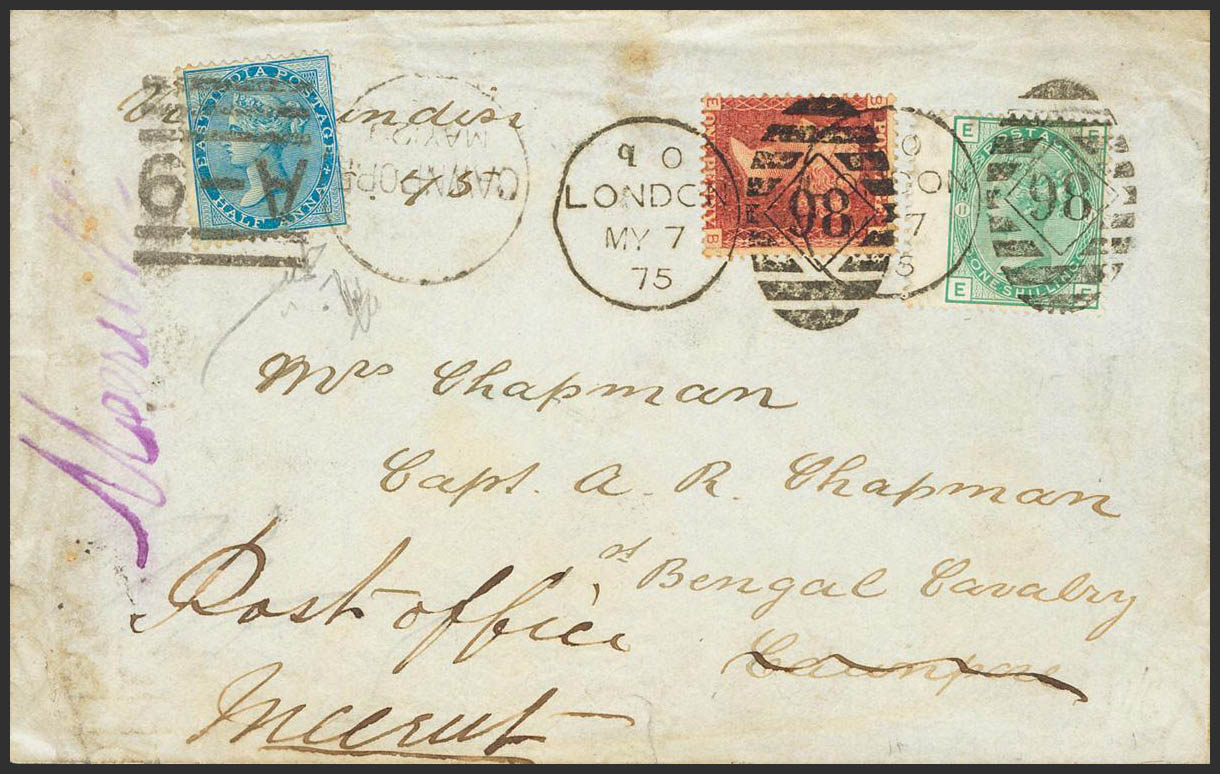 Via Brindisi
EAST INDIA POSTAGE
HALF ANNA
6-H
CAWNPORE
MAY 2
75
9 O
LONDON
MY 7
75
98
E B
ONE PENNY
B
98
E E
POSTAGE
11
ONE SHILLING
E E
Mrs Chapman
Capt. A. R. Chapman
st Bengal Cavalry
Cawnpore
Post office
Meerut